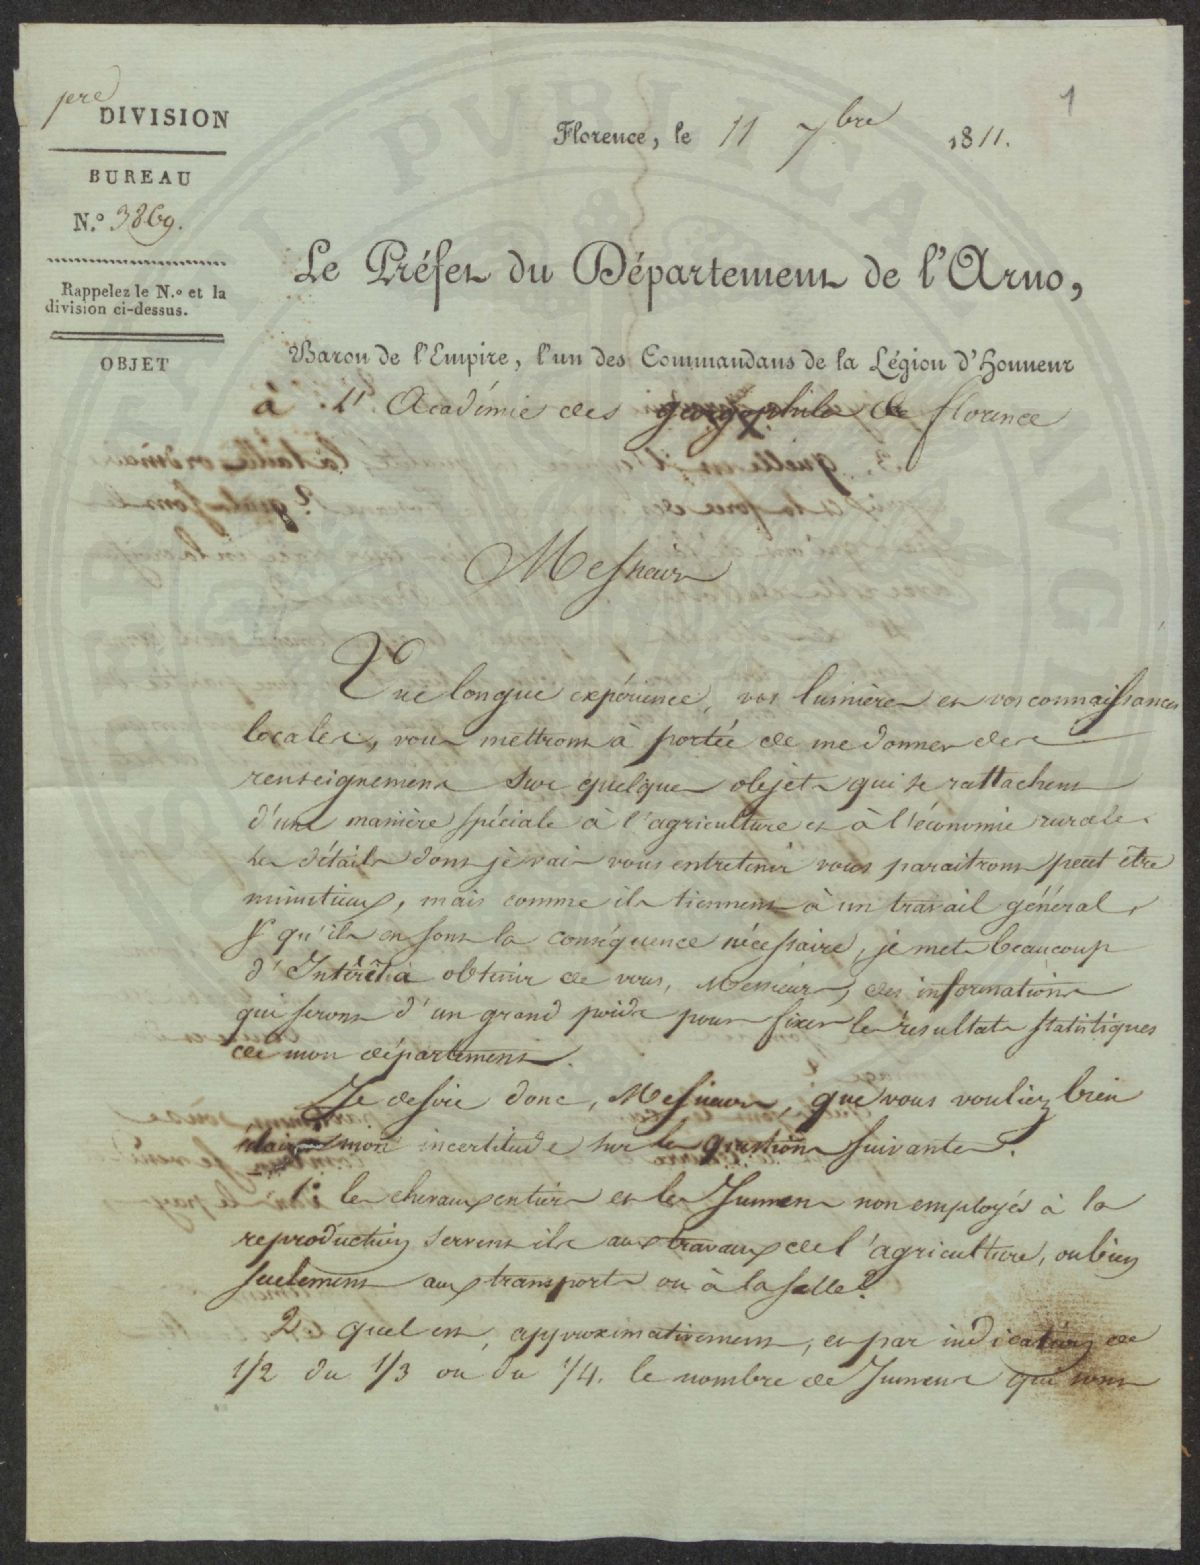 1
pre DIVISION
Florence, le 11 7bre 1811.
BUREAU
N.º 3869.
Rappelez le N.º et la
division ci-dessus.
OBJET
Le Préfet du Département de l'Arno,
Baron de l'Empire, l'un des Commandans de la Légion d'Honneur
à l'Académie des georgophiles de florence
Messieurs
Une longue expérience, vos lumières et vos connaissances
locales, vous mettront à portée de me donner des
renseignemens sur quelques objets qui se rattachent
d'une manière spéciale à l'agriculture et à l'économie rurale.
les détails dont je vais vous entretenir vous paraitront peut être
minutieux, mais comme ils tiennent à un travail général,
& qu'ils en sont la conséquence nécessaire, je mets beaucoup
d'Intérêt à obtenir de vous, Messieurs, des informations
qui seront d'un grand poids pour fixer les résultats statistiques
de mon département.
Je desire donc, Messieurs, que vous vouliez bien
mon incertitude sur les questions suivantes.
1º les chevaux entiers et les Jumens non employés à la
reproduction servent ils aux travaux de l'agriculture, ou bien
seulement aux transports ou à la selle?
2 quel est, approximativement, et par indication de
1/2 du 1/3 ou du 1/4. le nombre de Jumens qui sont